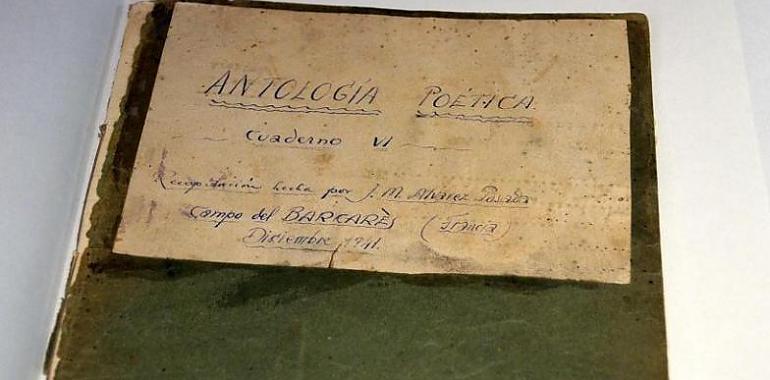 ANTOLOGÍA POÉTICA.
Cuaderno VI
Recopilación hecha por J. M. Alvarez Posada
Campo del BARCARÈS (Francia)
Diciembre 1941.